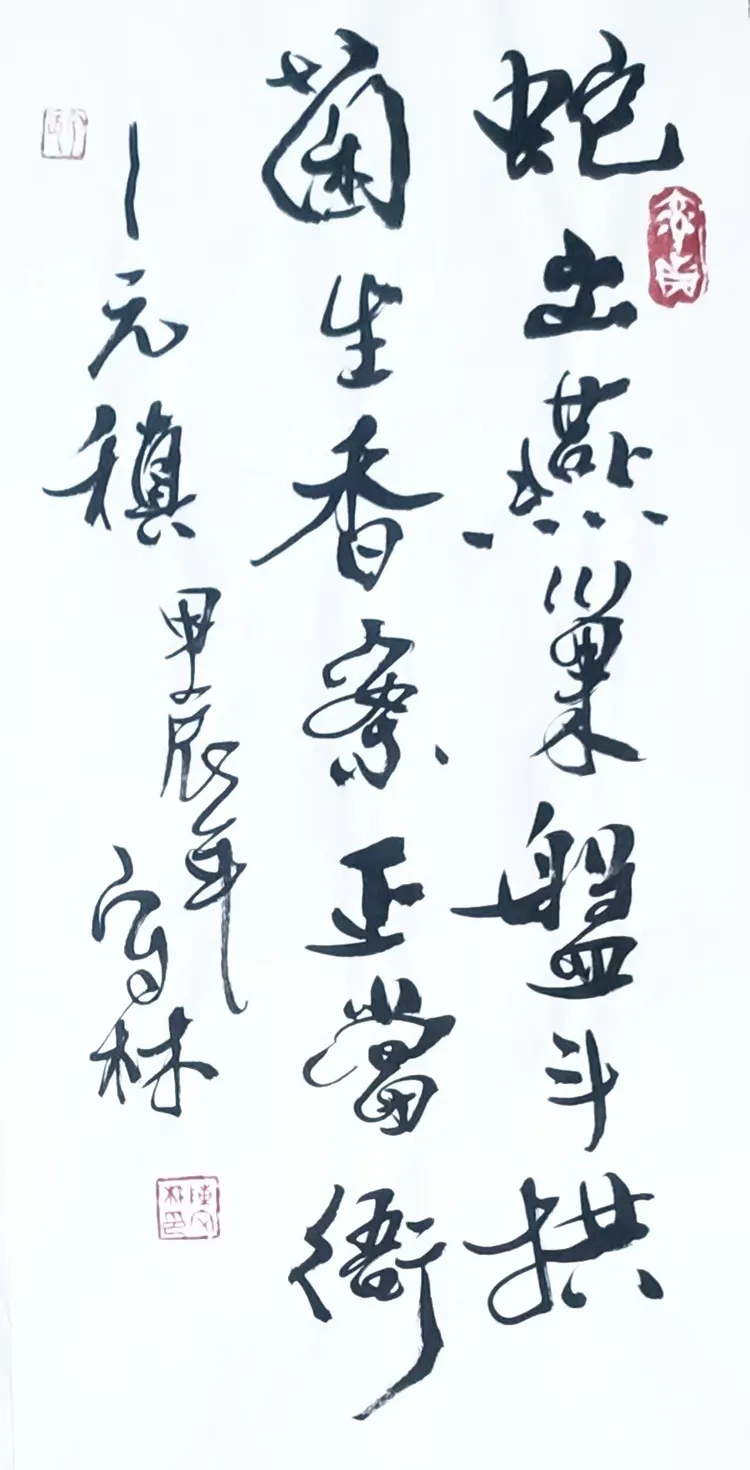 蛇出燕巢盤斗拱
菌生香案正當衙
—元稹
甲辰年
林